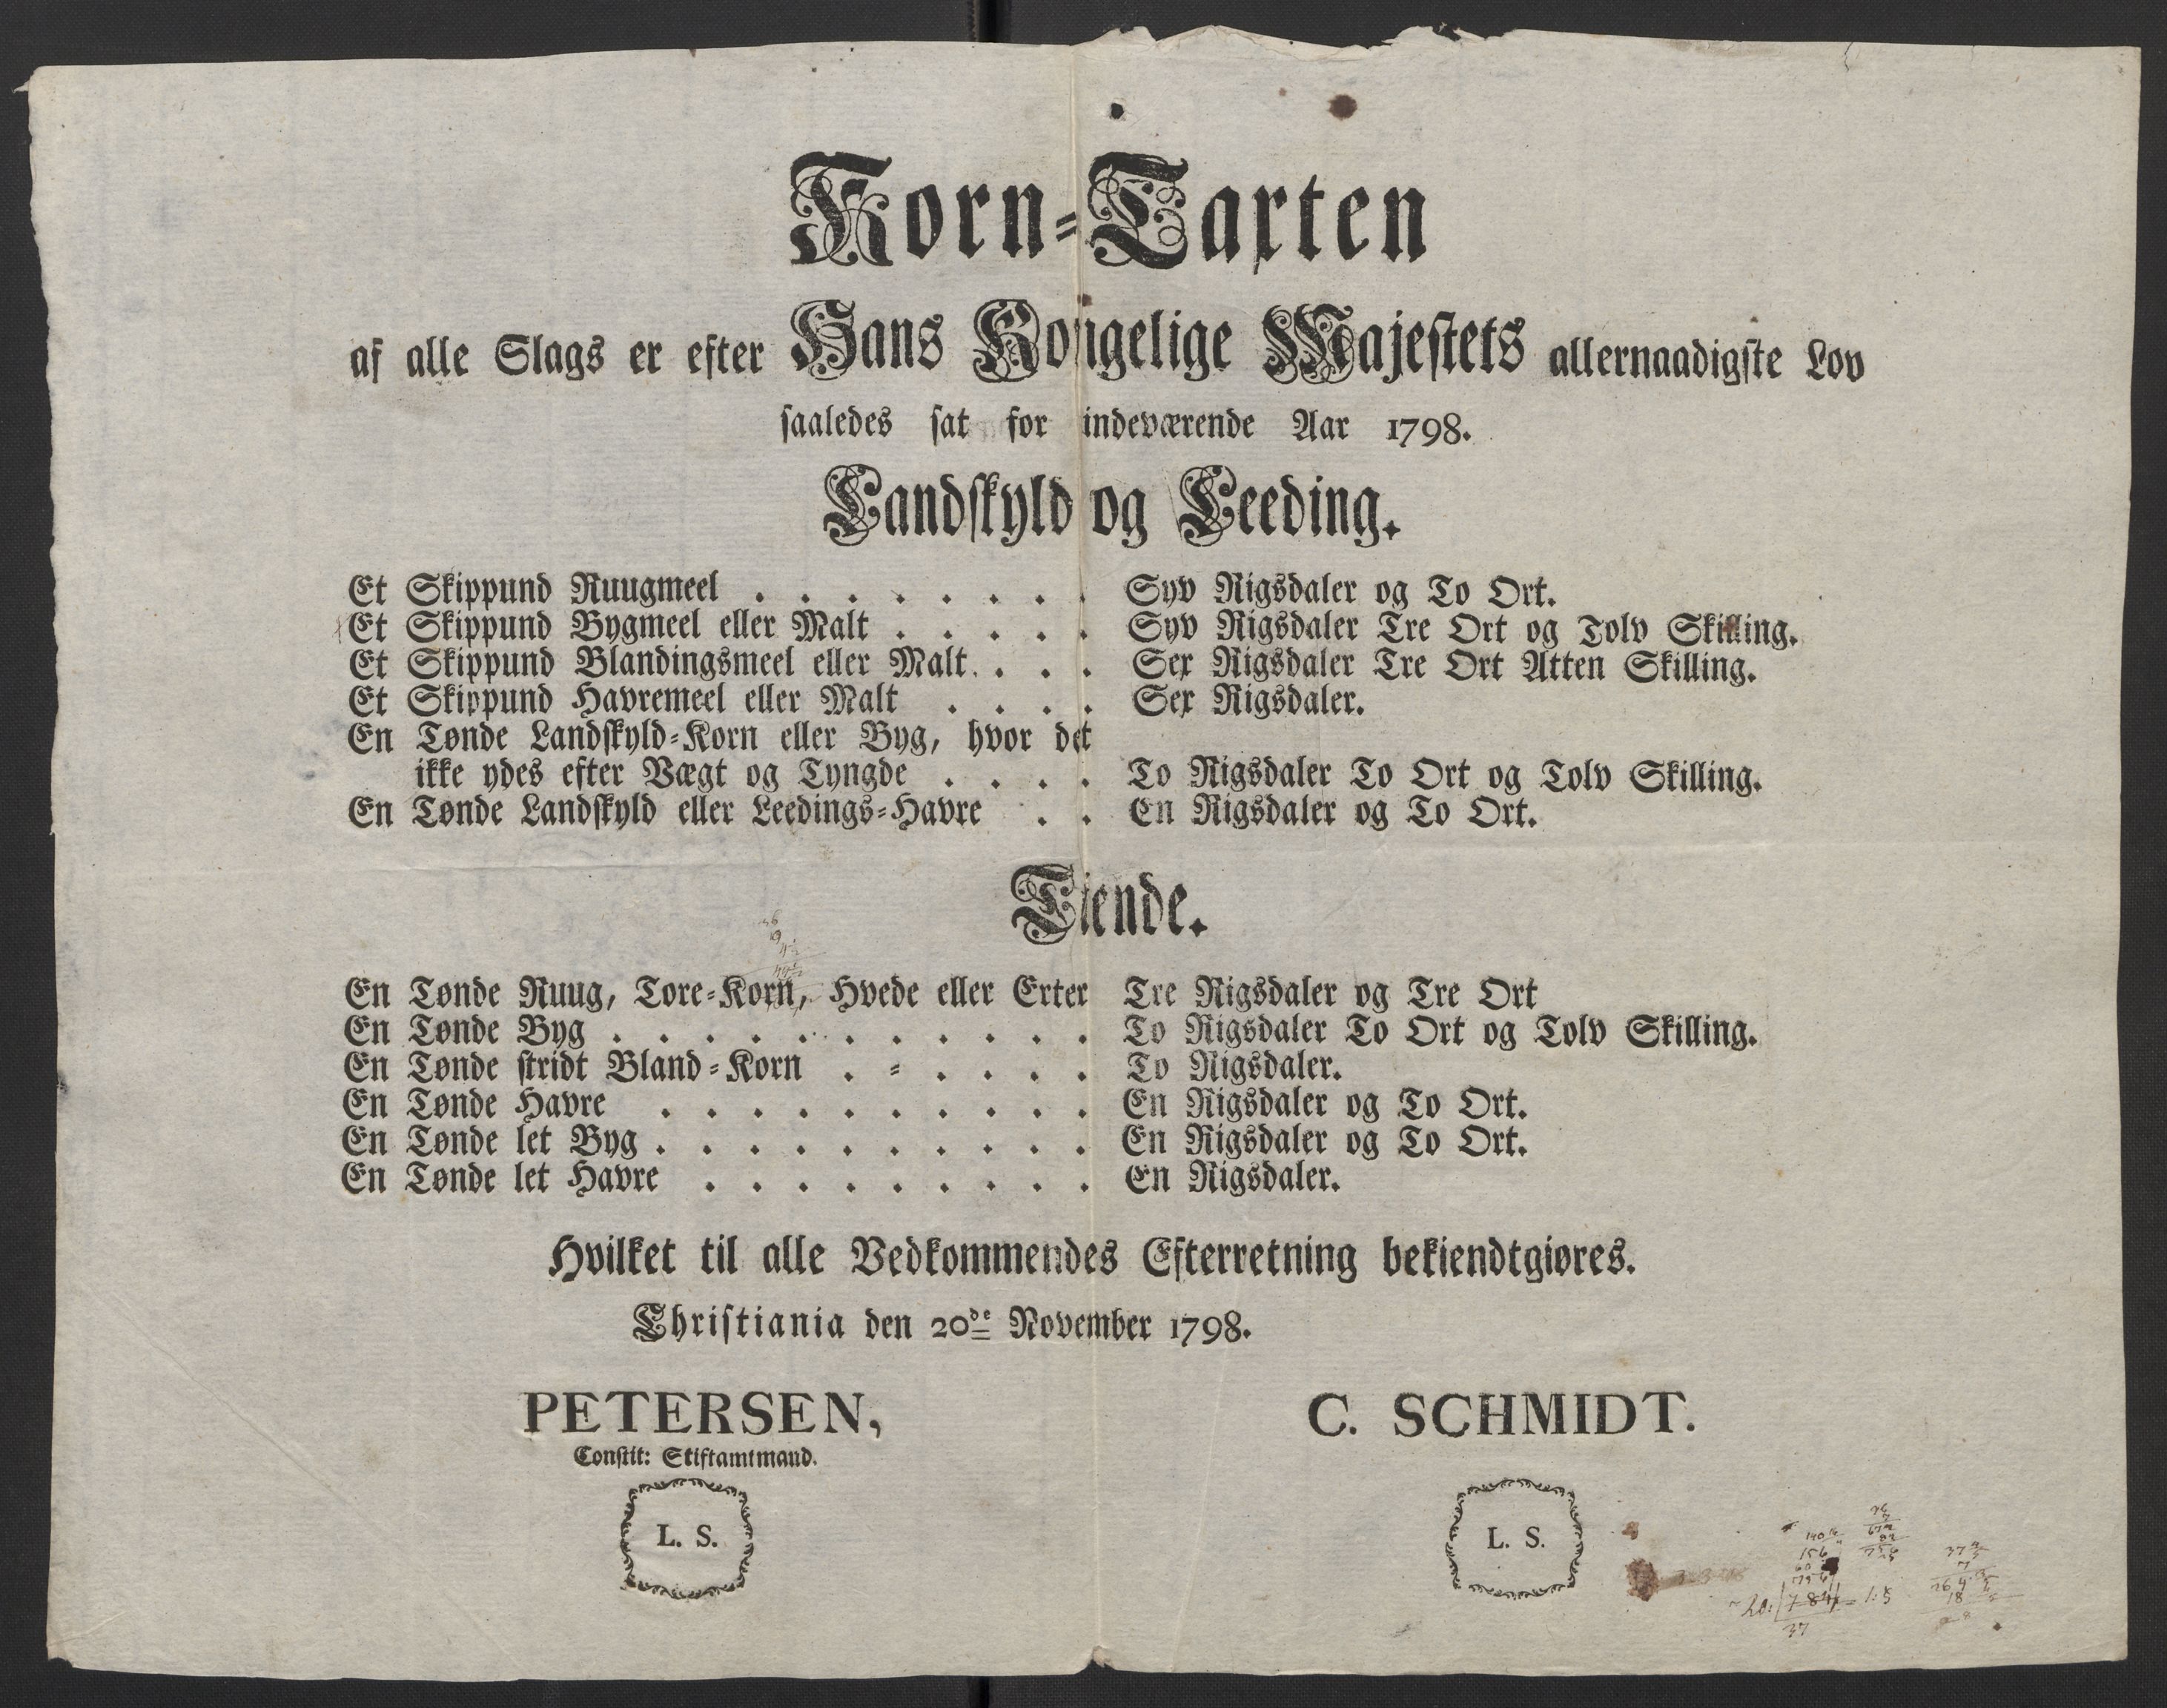 Korn-Taxten
af alle Slags er efter Hans Kongelige Majestets allernaadigste Lov
saaledes sat for indeværende Aar 1798.
Landskyld og Leeding.
Et Skippund Ruugmeel . . . . . . . . Syv Rigsdaler og To Ort.
Et Skippund Bygmeel eller Malt . . . . . Syv Rigsdaler Tre Ort og Tolv Skilling.
Et Skippund Blandingsmeel eller Malt . . . Sex Rigsdaler Tre Ort Atten Skilling.
Et Skippund Havremeel eller Malt . . . . Sex Rigsdaler.
En Tønde Landskyld-Korn eller Byg, hvor det
ikke ydes efter Vægt og Tyngde . . . . To Rigsdaler To Ort og Tolv Skilling.
En Tønde Landskyld eller Leedings-Havre . . En Rigsdaler og To Ort.
Tiende.
En Tønde Ruug, Tore-Korn, Hvede eller Erter Tre Rigsdaler og Tre Ort
En Tønde Byg . . . . . . . . . . . To Rigsdaler To Ort og Tolv Skilling.
En Tønde stridt Bland-Korn . - . . . . To Rigsdaler.
En Tønde Havre . . . . . . . . . . En Rigsdaler og To Ort.
En Tønde let Byg . . . . . . . . . . En Rigsdaler og To Ort.
En Tønde let Havre . . . . . . . . . En Rigsdaler.
Hvilket til alle Vedkommendes Efterretning bekiendtgiøres.
Christiania den 20de November 1798.
PETERSEN, C. SCHMIDT.
Constit: Stiftamtmand.
L. S. L. S.
37